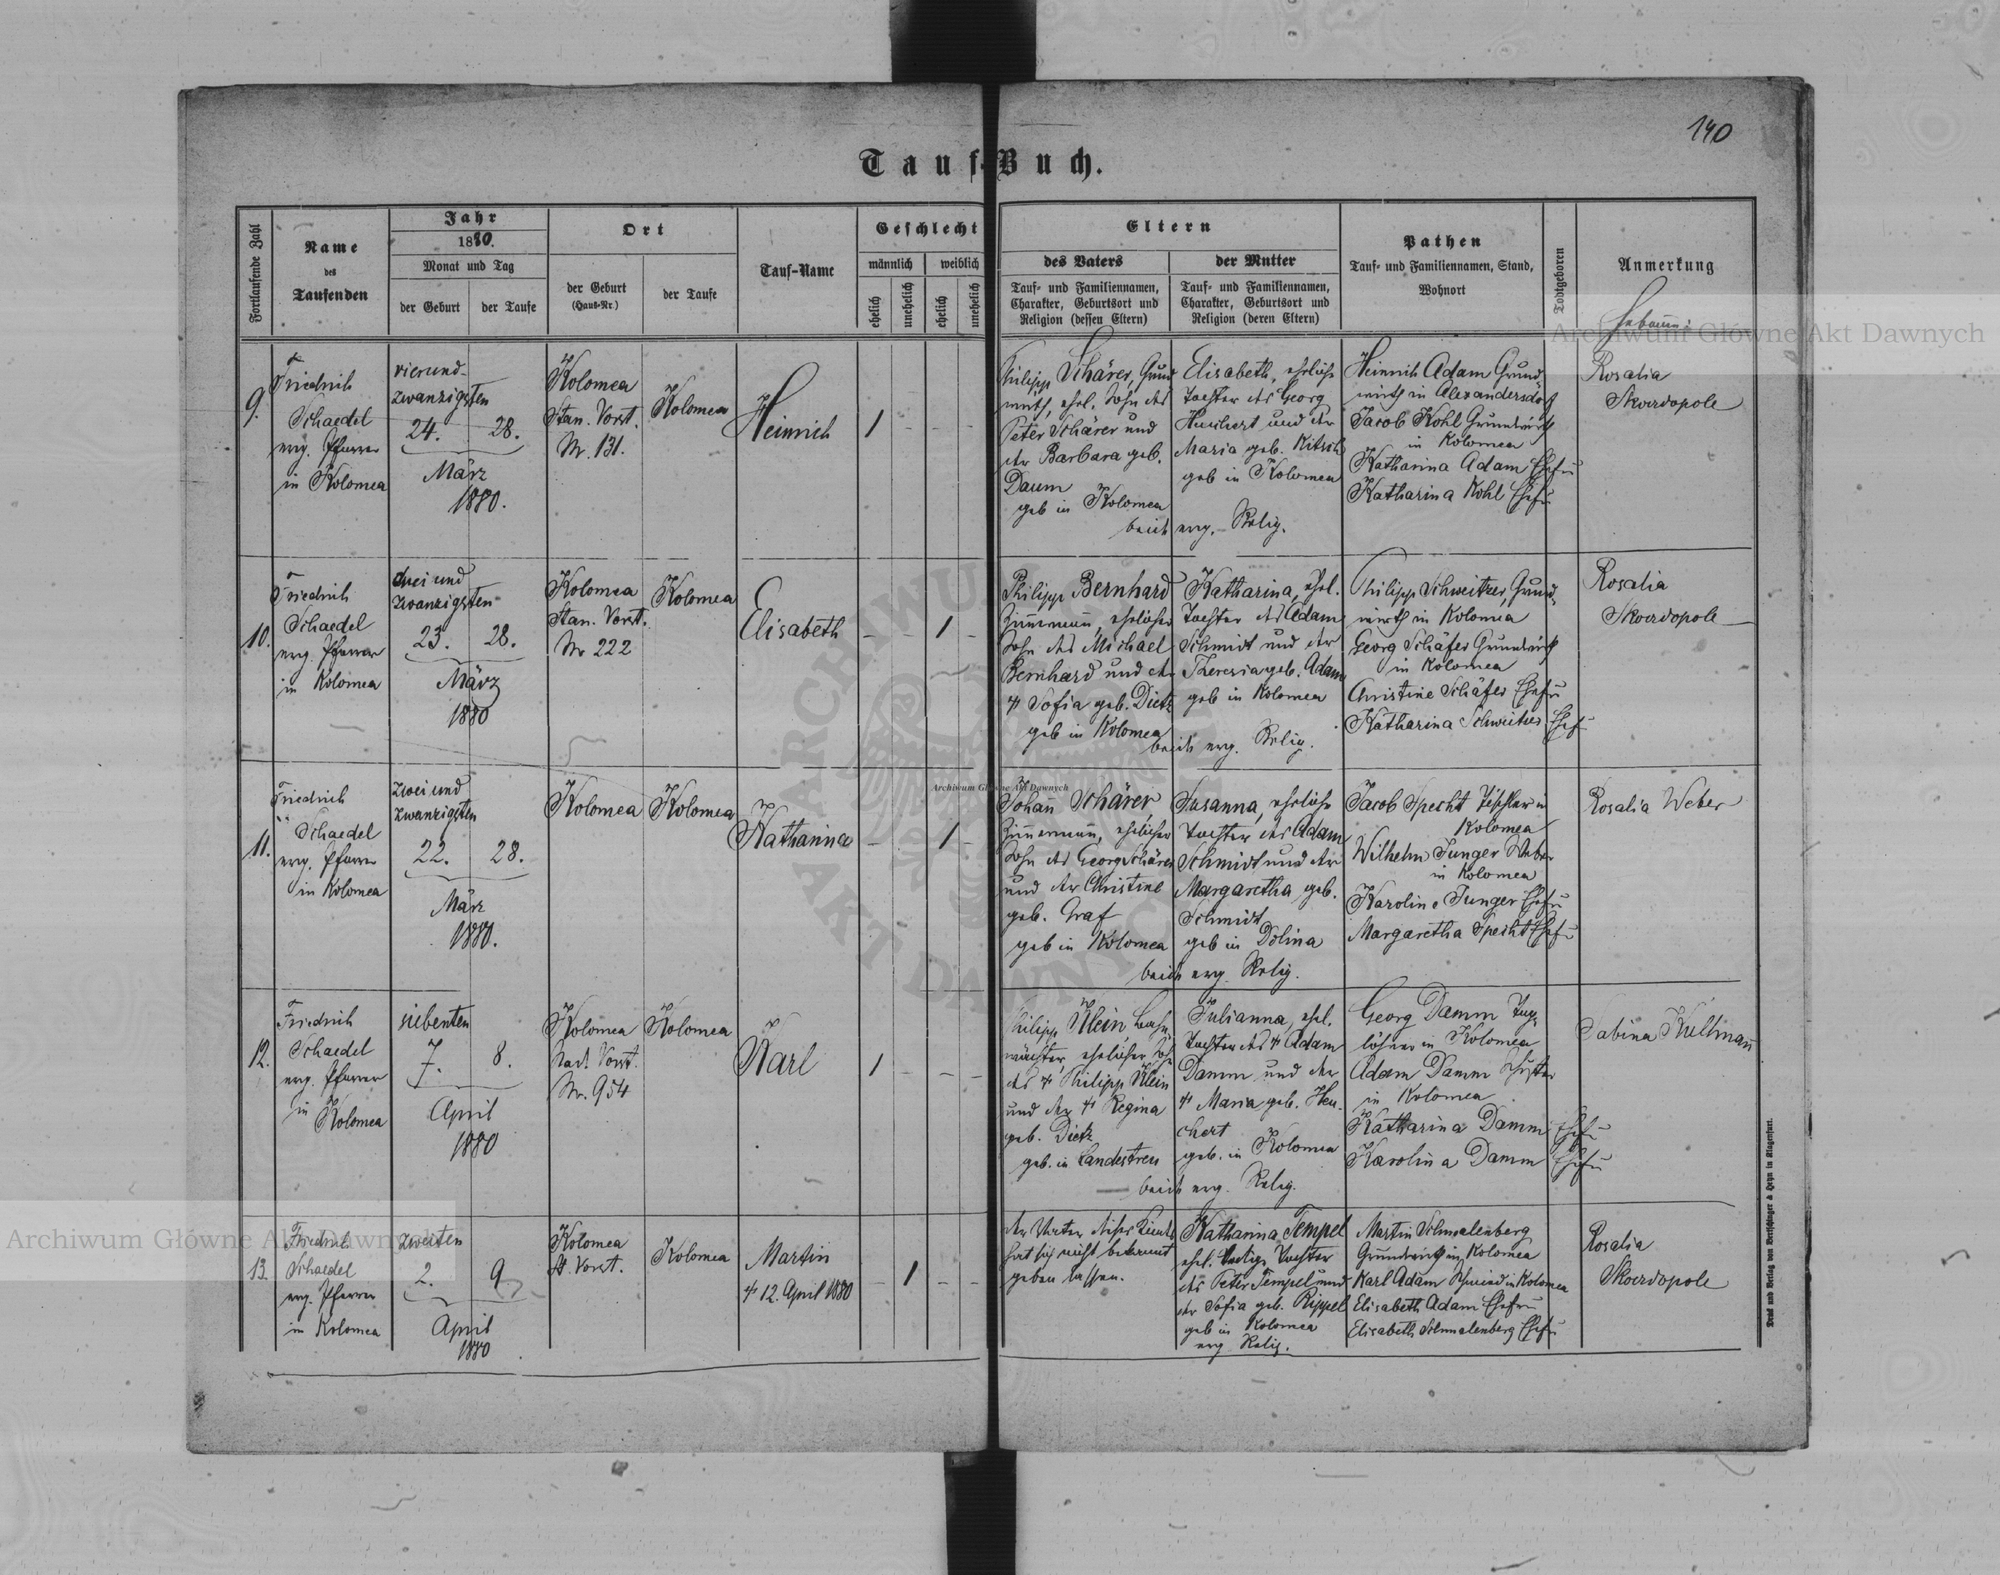 140
Tauf-Buch.
Fortlaufende Zahl
Name
des
Taufenden
Jahr
1880.
Monat und Tag
der Geburt
der Taufe
Ort
der Geburt
(Haus-Nr.)
der Taufe
Tauf-Name
Geschlecht
männlich
weiblich
ehelich
unehelich
ehelich
unehelich
Eltern
des Vaters
Tauf- und Familiennamen,
Charakter, Geburtsort und
Religion (dessen Eltern)
der Mutter
Tauf- und Familiennamen,
Charakter, Geburtsort und
Religion (deren Eltern)
Pathen
Tauf- und Familiennamen, Stand,
Wohnort
Todtgeboren
Anmerkung
9.
Friedrich
Schaedel
evg. Pfarrer
in Kolomea
vierund-
zwanzigsten
24. 28.
März
1880.
Kolomea
Stan. Vorst.
Nr. 131.
Kolomea
Heinrich
1 - - -
Philipp Schärer, Grund
wirth, ehel. Sohn des
Peter Schärer und
der Barbara geb.
Daum
geb in Kolomea
Elisabeth, eheliche
Tochter des Georg
Heuchert und der
Maria geb. Kitsch
geb in Kolomea
beide evg. Relig.
Heinrich Adam Grund-
wirth in Alexandersdorf
Jacob Kohl Grundwirth
in Kolomea
Katharina Adam Ehefr
Katharina Kohl Ehefr
Rosalia
Skordopole
10.
Friedrich
Schaedel
evg. Pfarrer
in Kolomea
drei und
zwanzigsten
23. 28.
März
1880
Kolomea
Stan. Vorst.
Nr 222
Kolomea
Elisabeth
- - 1 -
Philipp Bernhard
Zimmermann, ehelicher
Sohn des Michael
Bernhard und der
Sofia geb. Dietz
geb in Kolomea
Katharina, ehel.
Tochter des Adam
Schmidt und der
Theresia geb. Adam
geb in Kolomea
beide evg. Relig.
Philipp Schweitzer, Grund-
wirth in Kolomea
Georg Schäfer Grundwirth
in Kolomea
Christine Schäfer Ehefr
Katharina Schweitzer Ehefr
Rosalia
Skordopole
11.
Friedrich
Schaedel
evg. Pfarrer
in Kolomea
zwei und
zwanzigsten
22. 28.
März
1880.
Kolomea
Kolomea
Katharina
- - 1 -
Johann Schärer
Zimmermann, ehelicher
Sohn des Georg Schärer
und der Christine
geb. Graf
geb in Kolomea
Susanna, eheliche
Tochter des Adam
Schmidt und der
Margaretha geb.
Schmidt
geb in Dolina
beide evg. Relig.
Jacob Specht Tischler in
Kolomea
Wilhelm Junger Weber
in Kolomea
Karoline Junger Ehefr
Margaretha Specht Ehefr
Rosalia Weber
12.
Friedrich
Schaedel
evg. Pfarrer
in Kolomea
siebenten
7. 8.
April
1880
Kolomea
Nad. Vorst.
Nr. 954
Kolomea
Karl
1 - - -
Philipp Klein Bahn
wächter, ehelicher Sohn
des Philipp Klein
und der Regina
geb. Dietz
geb. in Landestreu
Julianna, ehel.
Tochter des Adam
Damm und der
Maria geb. Heu-
chert
geb. in Kolomea
beide evg. Relig.
Georg Damm Tag-
löhner in Kolomea
Adam Damm Schuster
in Kolomea
Katharina Damm Ehefr
Karolina Damm Ehefr
Sabina Kullmann
13.
Friedrich
Schaedel
evg. Pfarrer
in Kolomea
zweiten
2. 9
April
1880
Kolomea
St. Vorst.
Kolomea
Martin
12. April 1880
- 1 - -
der Vater dieses Kindes
hat sich nicht bekannt
geben lassen.
Katharina Tempel
ehel. ledige Tochter
des Peter Tempel und
der Sofia geb. Rippel
geb in Kolomea
evg Relig.
Martin Schmalenberg
Grundwirth in Kolomea
Karl Adam Schmied in Kolomea
Elisabeth Adam Ehefr
Elisabeth Schmalenberg Ehefr
Rosalia
Skordopole
Druck und Verlag von Bertschinger & Heyn in Klagenfurt.
Archiwum Główne Akt Dawnych
Archiwum Główne Akt Dawnych
Archiwum Główne Akt Dawnych